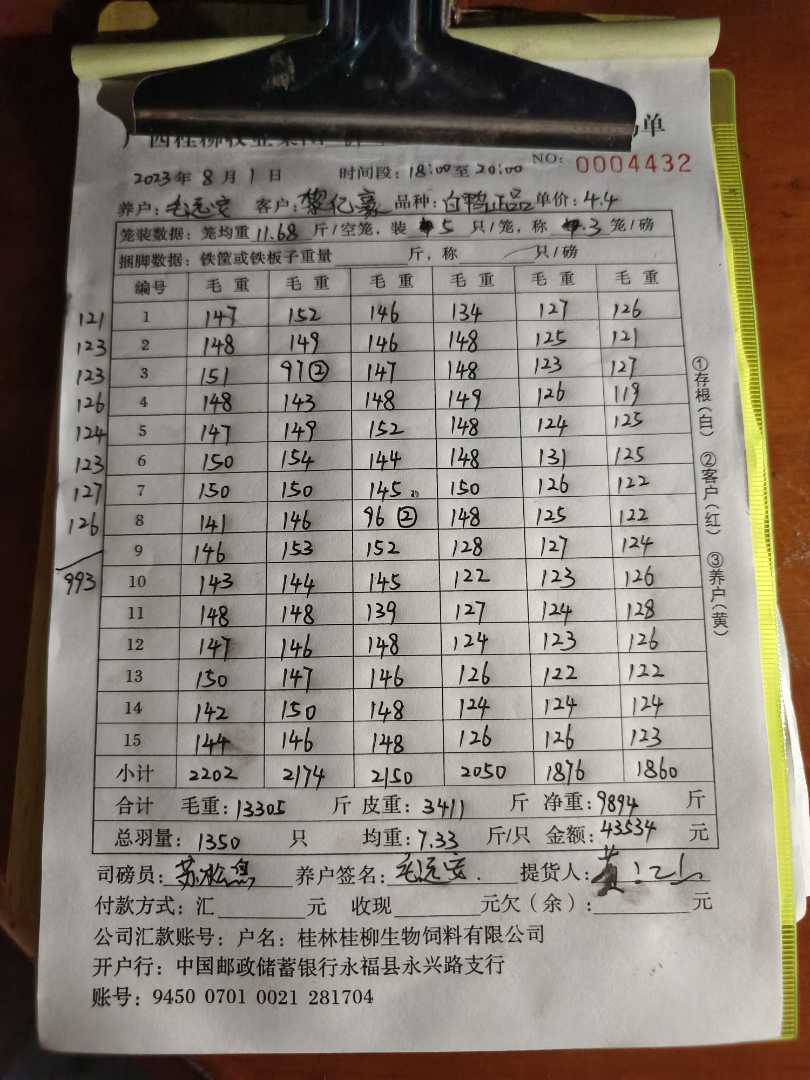 单
NO: 0004432
2023年8月1日 时间段: 18:00至20:00
养户: 毛远安 客户: 黎亿豪 品种: 白鸭正品 单价: 4.4
笼装数据: 笼均重 11.68 斤/空笼, 装 5 只/笼, 称 3 笼/磅
捆脚数据: 铁筐或铁板子重量 斤, 称 只/磅
编号 毛重 毛重 毛重 毛重 毛重 毛重
121 1 147 152 146 134 127 126
123 2 148 149 146 148 125 121
123 3 151 97② 147 148 123 127
126 4 148 143 148 149 126 119
124 5 147 149 152 148 124 125
123 6 150 154 144 148 131 125
127 7 150 150 145 150 126 122
126 8 141 146 96② 148 125 122
9 146 153 152 128 127 124
993 10 143 144 145 122 123 126
11 148 148 139 127 124 128
12 147 146 148 124 123 126
13 150 147 146 126 122 122
14 142 150 148 124 124 124
15 144 146 148 126 126 123
小计 2202 2174 2150 2050 1876 1860
合计 毛重: 13305 斤 皮重: 3411 斤 净重: 9894 斤
总羽量: 1350 只 均重: 7.33 斤/只 金额: 43534 元
司磅员: 养户签名: 毛远安. 提货人: 黄
付款方式: 汇 元 收现 元欠(余): 元
公司汇款账号: 户名: 桂林桂柳生物饲料有限公司
开户行: 中国邮政储蓄银行永福县永兴路支行
账号: 9450 0701 0021 281704
①存根(白) ②客户(红) ③养户(黄)